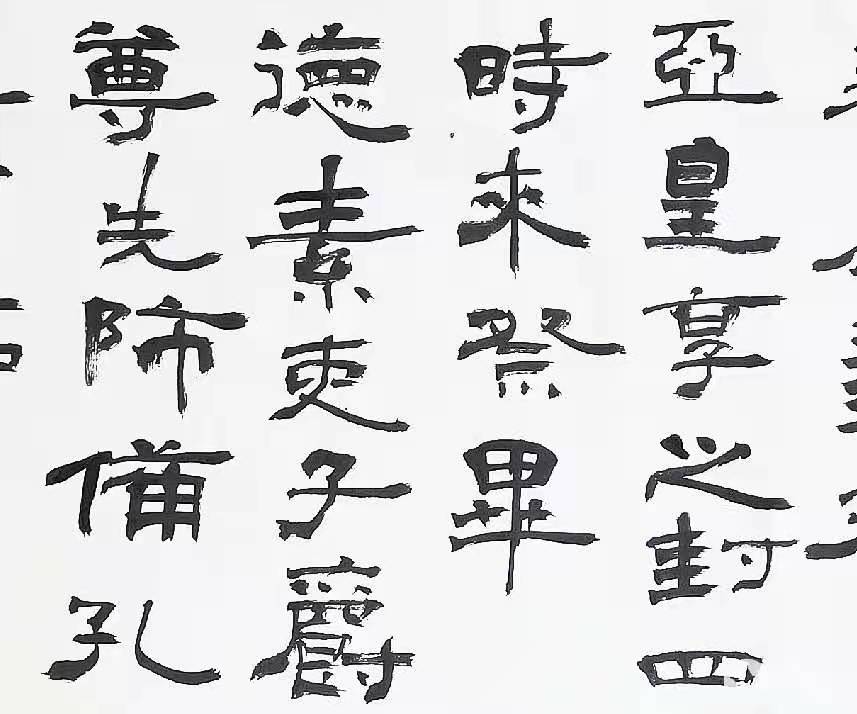 亞皇享之封四
時來祭畢
德素吏子爵
尊先師備孔